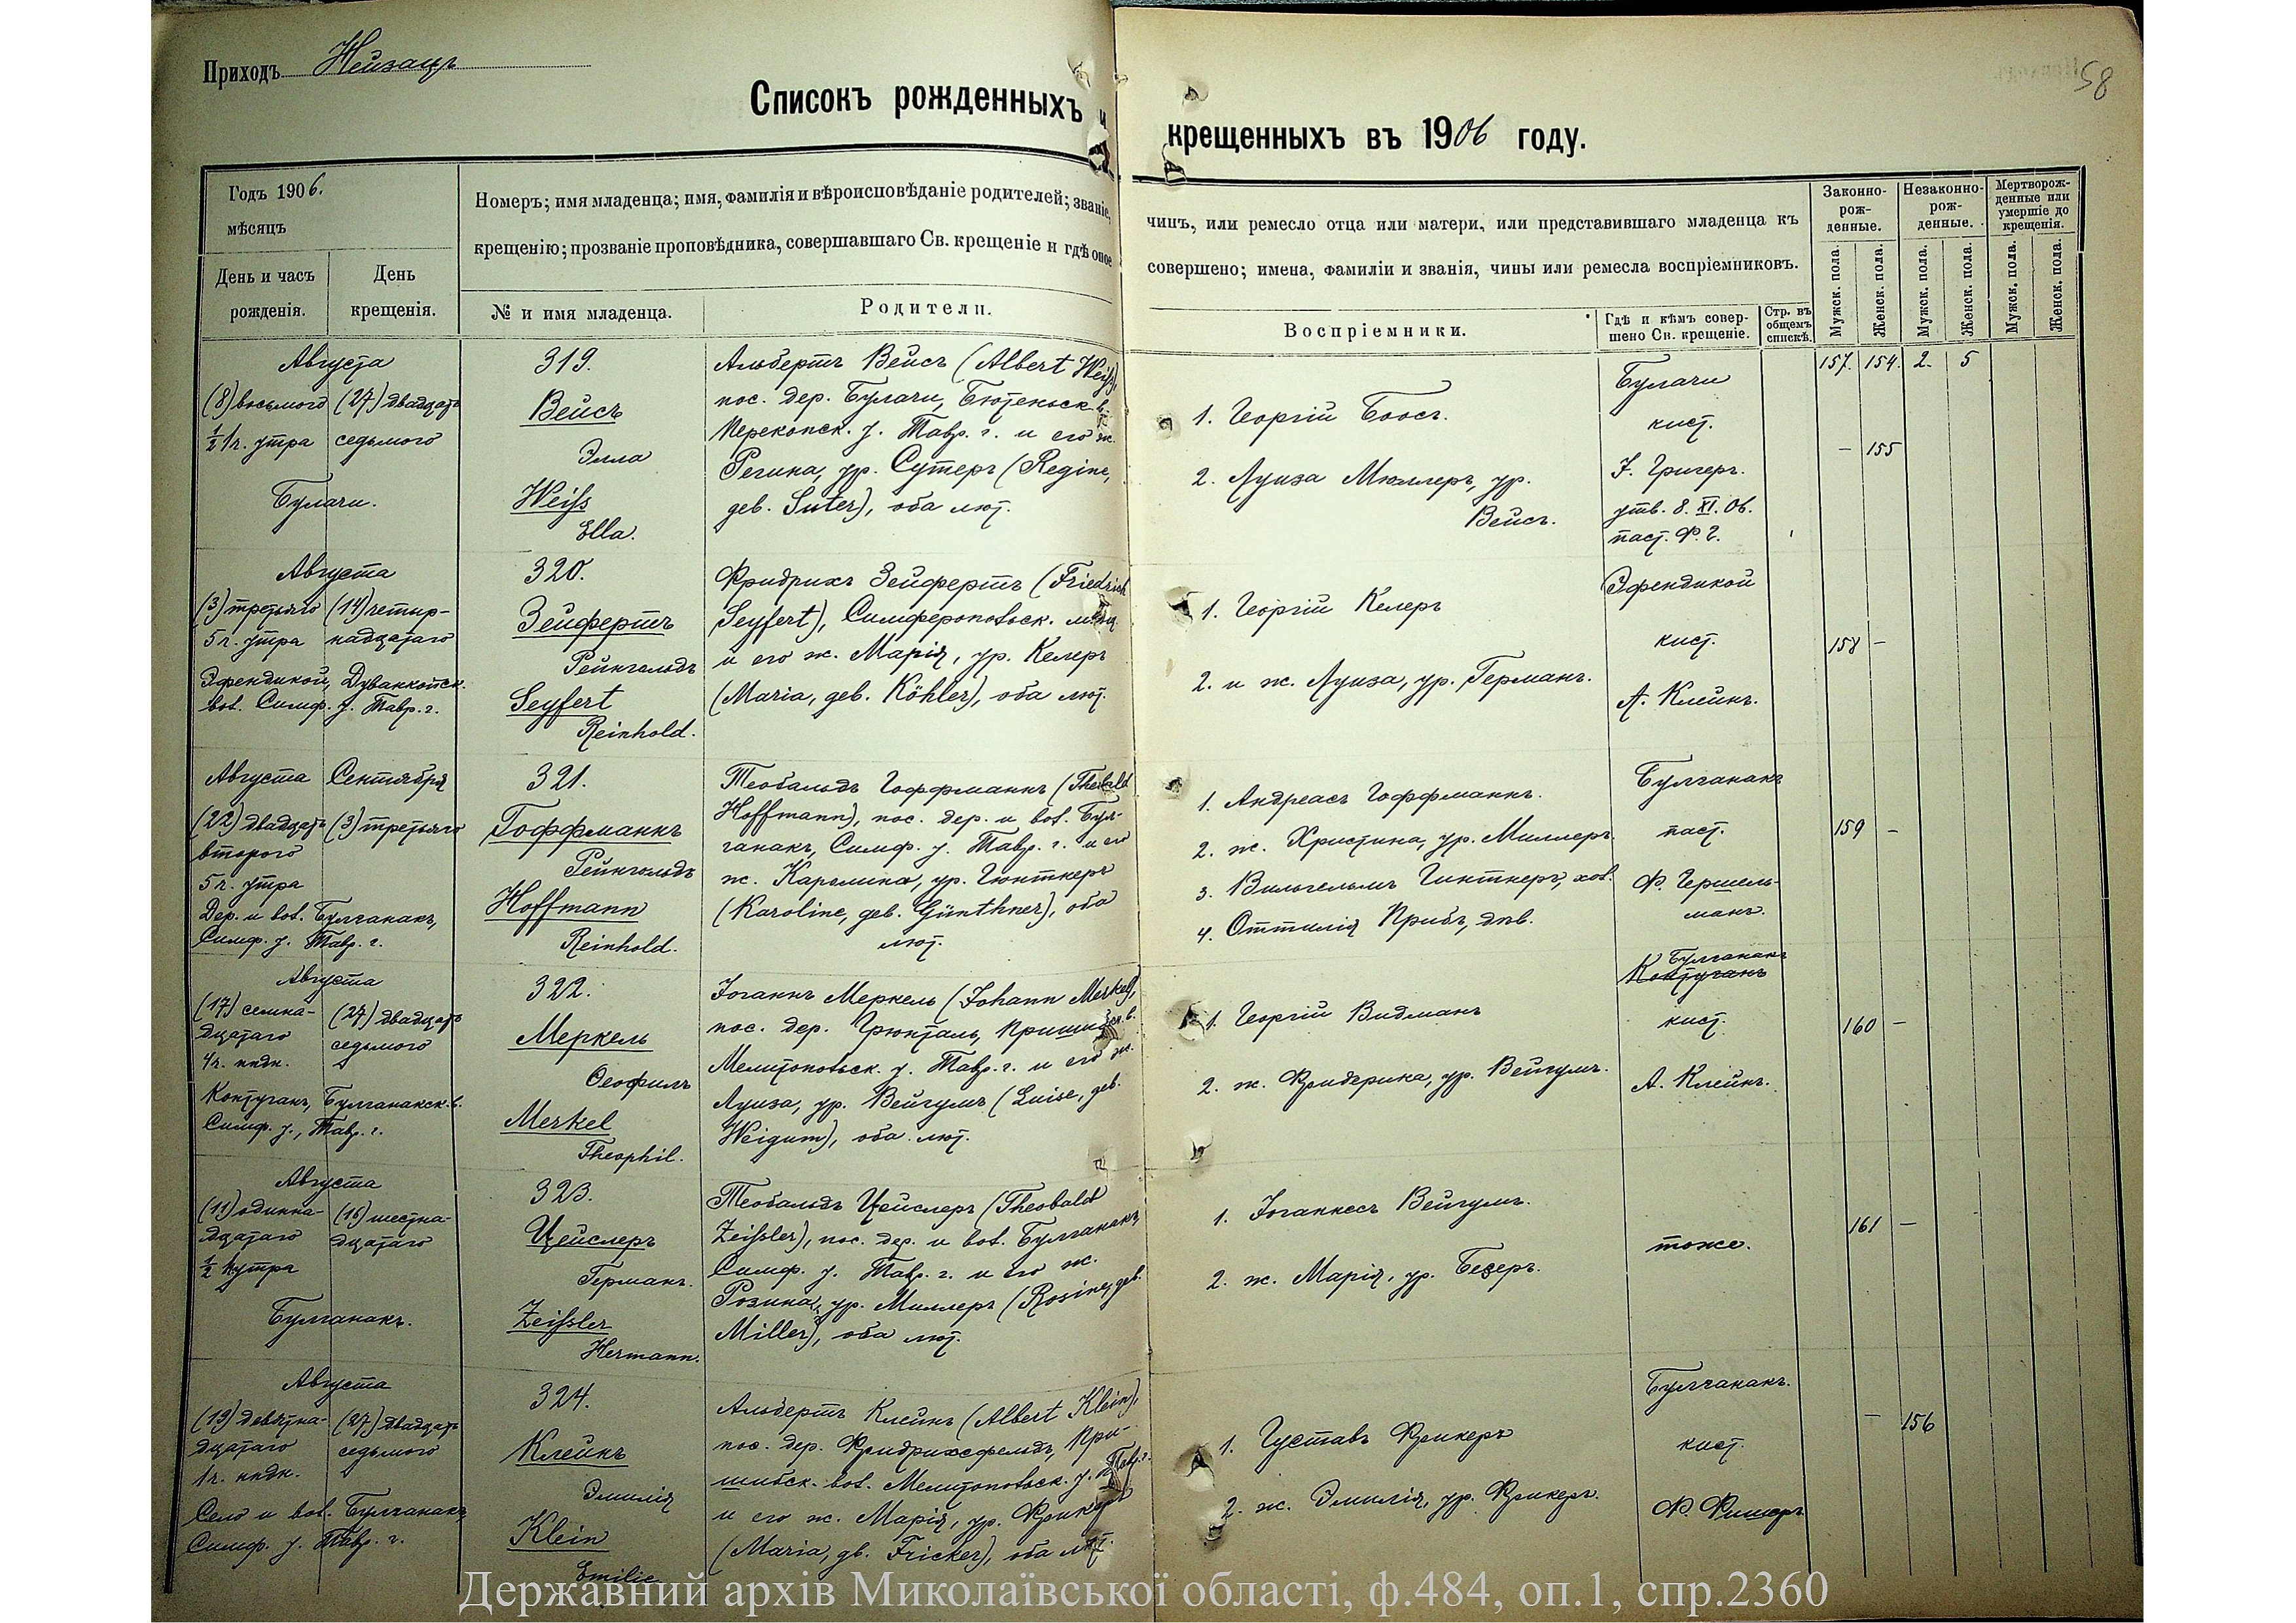 Приходъ Нейзацъ
58
Списокъ рожденныхъ и крещенныхъ въ 1906 году.
Годъ 1906.
мѣсяцъ
День и часъ рожденія.
День крещенія.
Номеръ; имя младенца; имя, фамилія и вѣроисповѣданіе родителей; званіе, чинъ, или ремесло отца или матери, или представившаго младенца къ
крещенію; прозваніе проповѣдника, совершавшаго Св. крещеніе и гдѣ оное совершено; имена, фамиліи и званія, чины или ремесла воспріемниковъ.
№ и имя младенца.
Родители.
Воспріемники.
Гдѣ и кѣмъ совершено Св. крещеніе.
Стр. въ общемъ спискѣ.
Законно-рожденные.
Незаконно-рожденные.
Мертворожденные или умершіе до крещенія.
Мужск. пола
Женск. пола.
Мужск. пола.
Женск. пола
Мужск. пола.
Женск. пола.
157. 154. 2. 5
Августа
(8) восьмого
½ 1 ч. утра
Булачи.
(27) двадцать
седьмого
319.
Вейсъ
Элла
Weiß
Ella.
Альбертъ Вейсъ (Albert Weiß),
пос. дер. Булачи, Бютеньск. в.
Перекопск. у. Тавр. г. и его ж.
Регина, ур. Сутеръ (Regine,
geb. Suter), оба лют.
1. Георгій Боосъ.
2. Луиза Мюллеръ, ур.
Вейсъ.
Булачи
кист.
J. Григеръ.
утв. 8. XI. 06.
паст. Ф. Г.
– 155
Августа
(3) третьяго
5 ч. утра
Эфендикой, Дуванкойск.
вол. Симф. у. Тавр. г.
(14) четыр-
надцатаго
320.
Зейфертъ
Рейнгольдъ
Seyfert
Reinhold.
Фридрихъ Зейфертъ (Friedrich
Seyfert), Симферопольск. мѣщ.
и его ж. Марія, ур. Келеръ
(Maria, geb. Köhler), оба лют.
1. Георгій Келеръ
2. и ж. Луиза, ур. Германъ.
Эфендикой
кист.
А. Клейнъ.
158 –
Августа
(22) двадцать
второго
5 ч. утра
Дер. и вол. Булганакъ,
Симф. у. Тавр. г.
Сентября
(3) третьяго
321.
Гоффманнъ
Рейнгольдъ
Hoffmann
Reinhold.
Теобальдъ Гоффманнъ (Theobald
Hoffmann), пос. дер. и вол. Бул-
ганакъ, Симф. у. Тавр. г. и его
ж. Каролина, ур. Гюнтнеръ
(Karoline, geb. Günthner), оба
лют.
1. Андреасъ Гоффманнъ.
2. ж. Христина, ур. Миллеръ.
3. Вильгельмъ Гинтнеръ, хол.
4. Оттилія Прибъ, дѣв.
Булганакъ
паст.
Ф. Гершель-
манъ.
159 –
Августа
(17) семна-
дцатаго
4 ч. ппдн.
Контуганъ, Булганакск. в.
Симф. у., Тавр. г.
(27) двадцать
седьмого
322.
Меркель
Ѳеофилъ
Merkel
Theophil.
Іоганнъ Меркель (Johann Merkel),
пос. дер. Грюнталь, Пришибск. в.
Мелитопольск. у. Тавр. г. и его ж.
Луиза, ур. Вейгумъ (Luise, geb.
Weigum), оба лют.
1. Георгій Видманъ
2. ж. Фридерика, ур. Вейгумъ.
Булганакъ
Контуганъ
кист.
А. Клейнъ.
160 –
Августа
(11) одинна-
дцатаго
½ 1 ч утра
Булганакъ.
(16) шестна-
дцатаго
323.
Цейслеръ
Германъ.
Zeißler
Hermann.
Теобальдъ Цейслеръ (Theobald
Zeißler), пос. дер. и вол. Булганакъ,
Симф. у. Тавр. г. и его ж.
Розина, ур. Миллеръ (Rosine, geb.
Miller), оба лют.
1. Іоганнесъ Вейгумъ.
2. ж. Марія, ур. Безеръ.
тоже.
161 –
Августа
(19) девятна-
дцатаго
1 ч. ппдн.
Село и вол. Булганакъ,
Симф. у. Тавр. г.
(27) двадцать
седьмого
324.
Клейнъ
Эмилія
Klein
Emilie
Альбертъ Клейнъ (Albert Klein),
пос. дер. Фридрихсфельдъ, При-
шибск. вол. Мелитопольск. у. Тавр. г.
и его ж. Марія, ур. Фрикеръ
(Maria, gb. Fricker), оба лют.
1. Густавъ Фрикеръ
2. ж. Эмилія, ур. Фрикеръ.
Булганакъ.
кист.
Ф. Фишеръ
– 156
Державний архів Миколаївської області, ф.484, оп.1, спр.2360